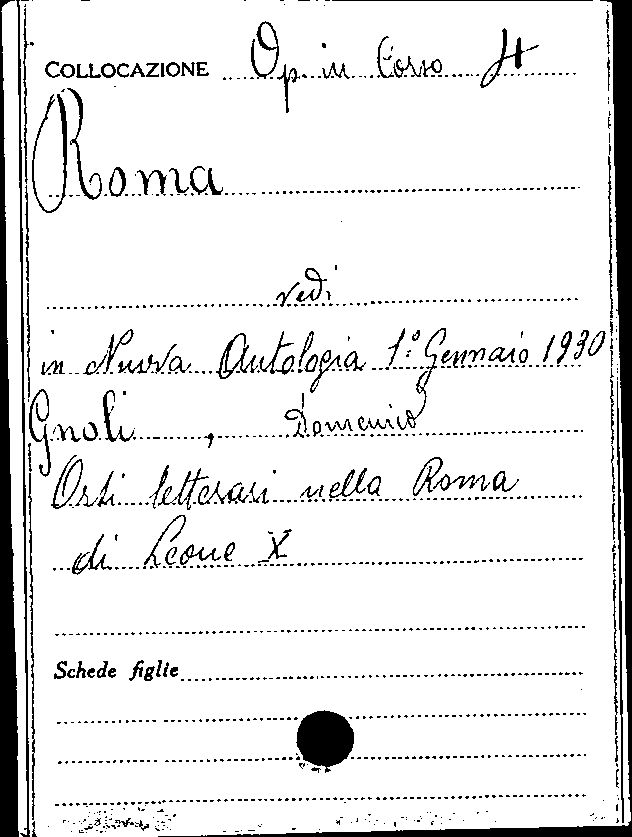 COLLOCAZIONE Op. in Corso 4
Roma
vedi
in Nuova Antologia 1° Gennaio 1930
Gnoli, Domenico
Orti letterari nella Roma
di Leone X
Schede figlie